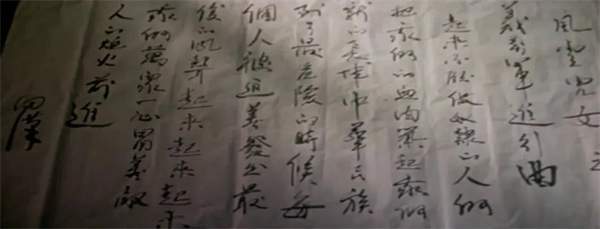 風雲兒女
義勇軍進行曲
起来不願做奴隸的人们
把我们的血肉築起我们
新的長城中華民族
到了最危險的時候每
個人被迫着發出最
後的吼聲起来起来起来
我们萬衆一心冒着敵
人的炮火前進